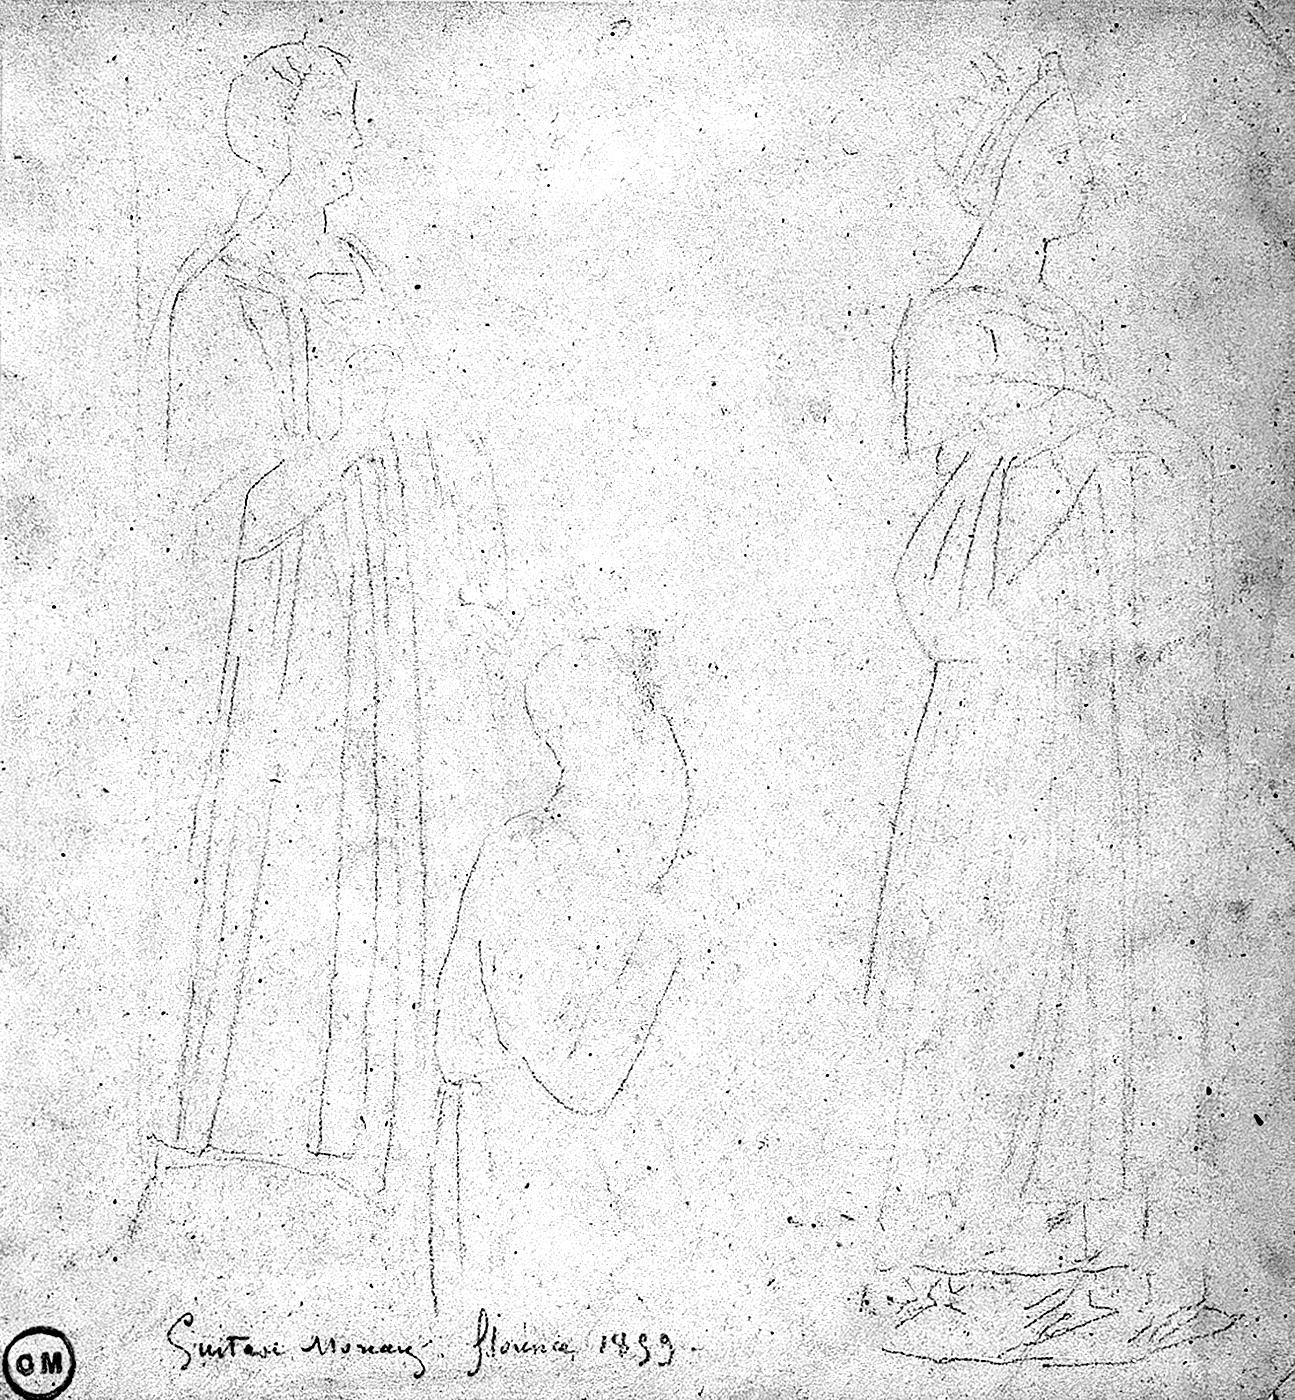 Gustave Moreau. florence, 1859.
GM